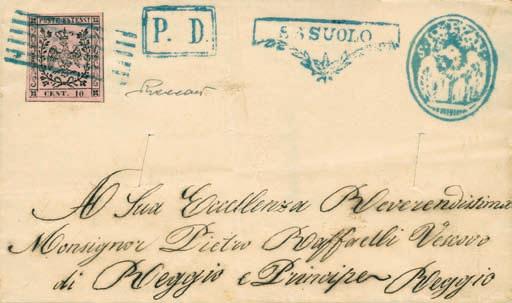 POSTE ESTENSI
CENT. 10
P. D.
SASSUOLO
A Sua Eccellenza Reverendissima
Monsignor Pietro Raffaelli Vescovo
di Reggio e Principe Reggio